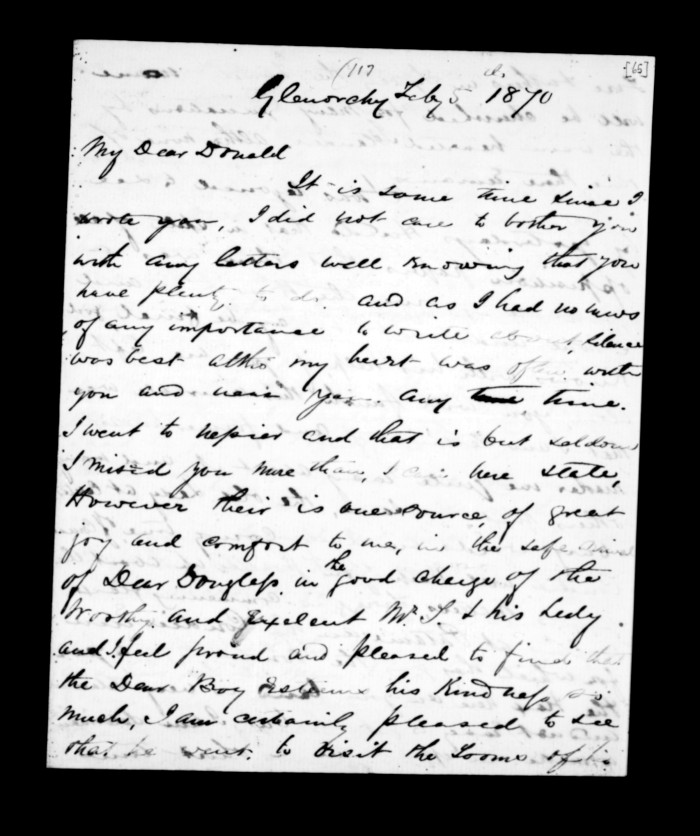 (117
[65]
Glenorchy Feby 5th 1870
My Dear Donald
It is some time since I
wrote you, I did not care to bother you
with any letters well knowing that you
have plenty to do and as I had no news
of any importance to write about, silence
was best altho my heart was often with
you and near you any time time.
I went to Nepier and that is but seldom
I missed you more than I can here state,
However their is one source, of great
joy and comfort to me, in the safe
of Dear Douglass in the good charge of the
Worthy and Exelent Mr. S. & his Lady.
and I feel proud and pleased to find that
the Dear Boy Esteems his Kindness so
much, I am certainly pleased to see
that he went, to visit the Tooms of his